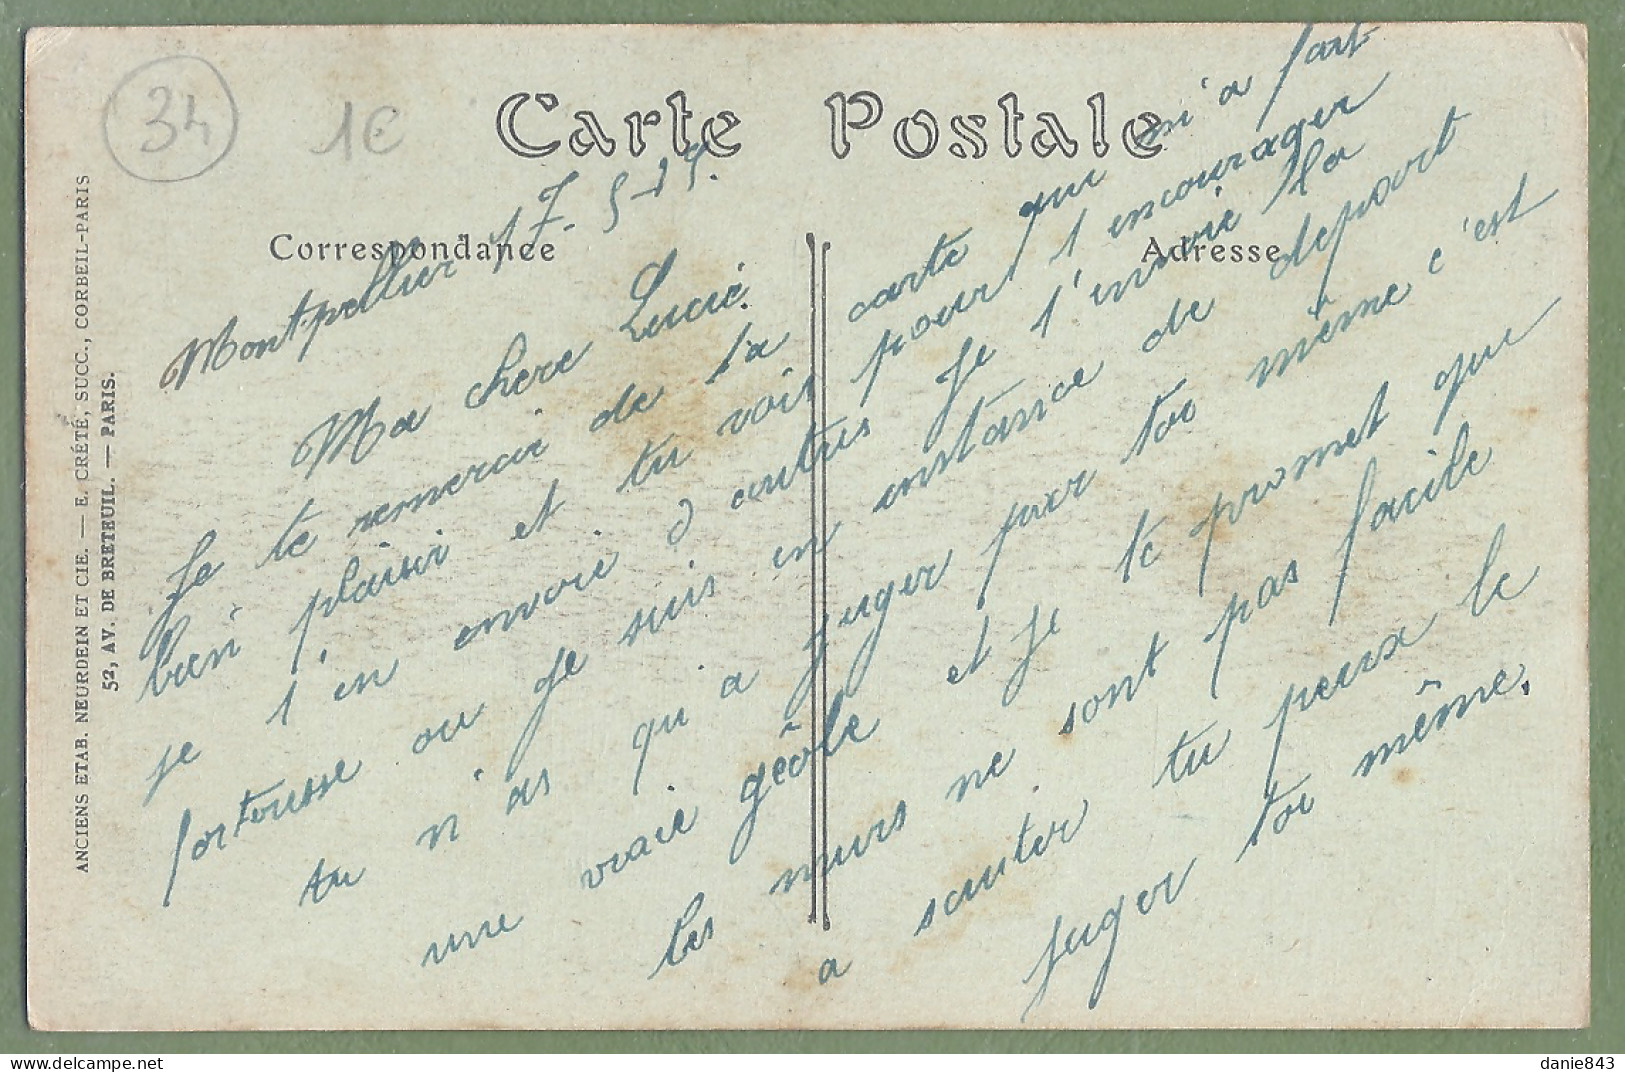 34
1€
Carte Postale
Correspondance
Adresse
ANCIENS ETAB. NEURDEIN ET CIE. — E. CRÉTÉ, SUCC., CORBEIL-PARIS
52, AV. DE BRETEUIL. — PARIS.
Montpellier 17-5-
Ma chere Lucie.
Je te remerci de ta carte qui m'a fait
bien plaisir et tu vois pour t encourager
je t'en envoie d autres Je t'envoie la
fortousse ou je suis en instance de depart
tu n'as qu'a juger par toi même c'est
une vraie geôle et je te promet que
les murs ne sont pas facile
a sauter tu peux le
juger toi même.
danie843